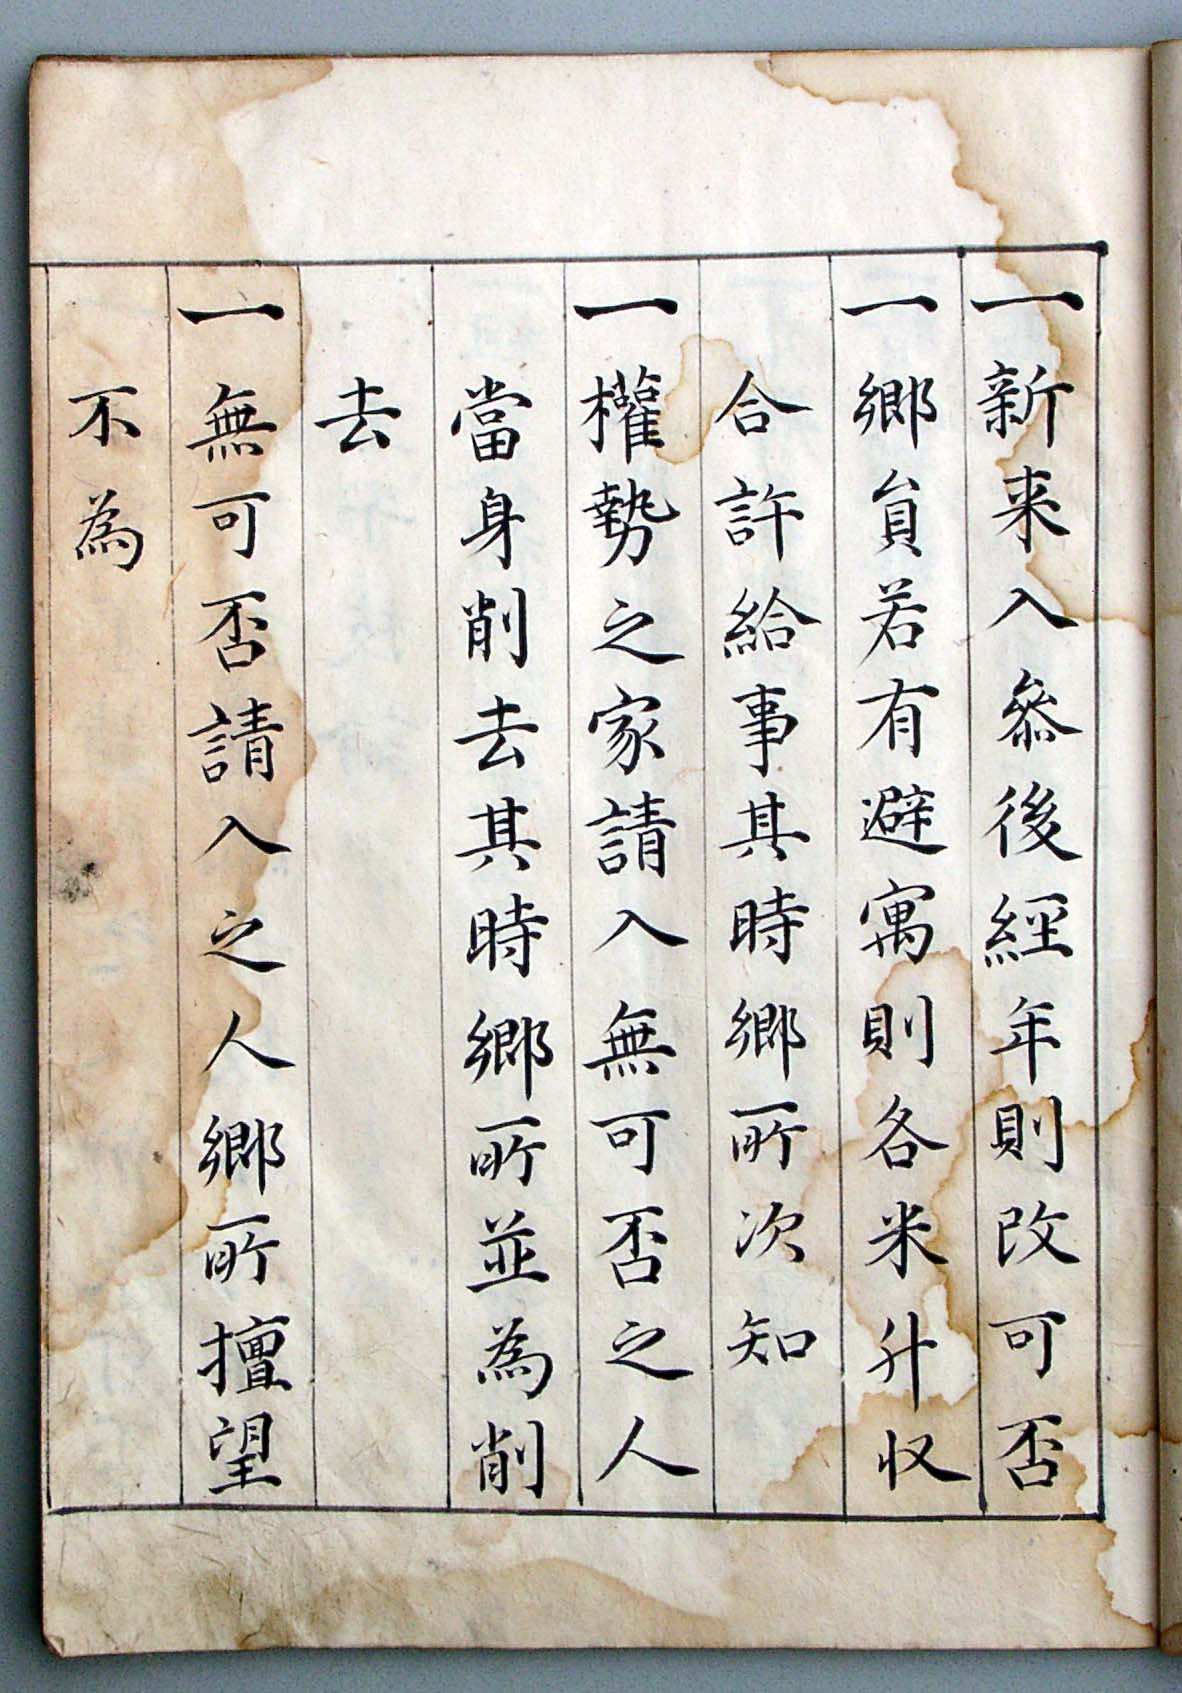 一新来入叅後經年則改可否
一鄉員若有避寓則各米升収
合許給事其時鄉所次知
一權勢之家請入無可否之人
當身削去其時鄉所並為削
去
一無可否請入之人鄉所擅望
不為